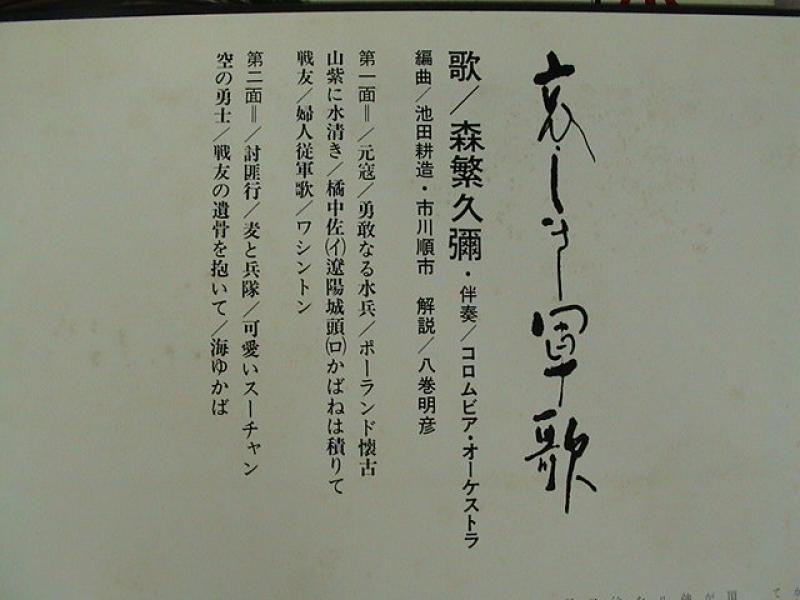 哀しき軍歌
歌／森繁久彌・伴奏／コロムビア・オーケストラ
編曲／池田耕造・市川順市　解説／八巻明彦
第一面＝／元寇／勇敢なる水兵／ポーランド懐古
山紫に水清き／橘中佐(イ)遼陽城頭(ロ)かばねは積りて
戦友／婦人従軍歌／ワシントン
第二面＝／討匪行／麦と兵隊／可愛いスーチャン
空の勇士／戦友の遺骨を抱いて／海ゆかば